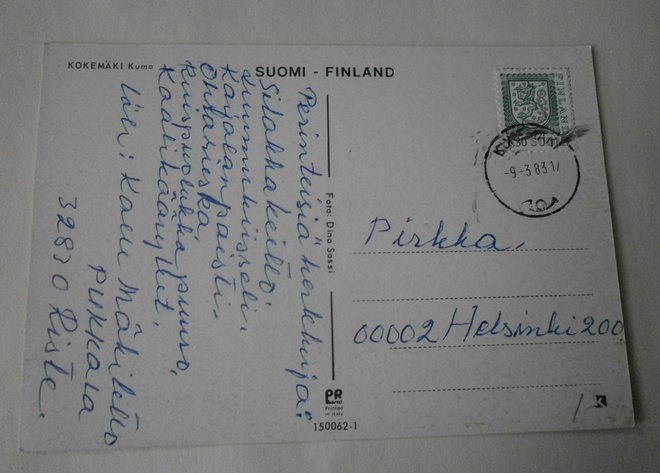 KOKEMÄKI Kumo
SUOMI - FINLAND
Perinteisiä herkkuja:
Silakkakeitto,
Karjalanpaisti.
Ohrarieska
Ruispuolukkapuuro,
Kaalikääryleet.
PUKKALA
32820 Riste.
Foto: Dino Sassi
PR
Printed
in Italy
150062-1
FINLAND
-9-3.83.17
Pirkka,
00002 Helsinki 200
K